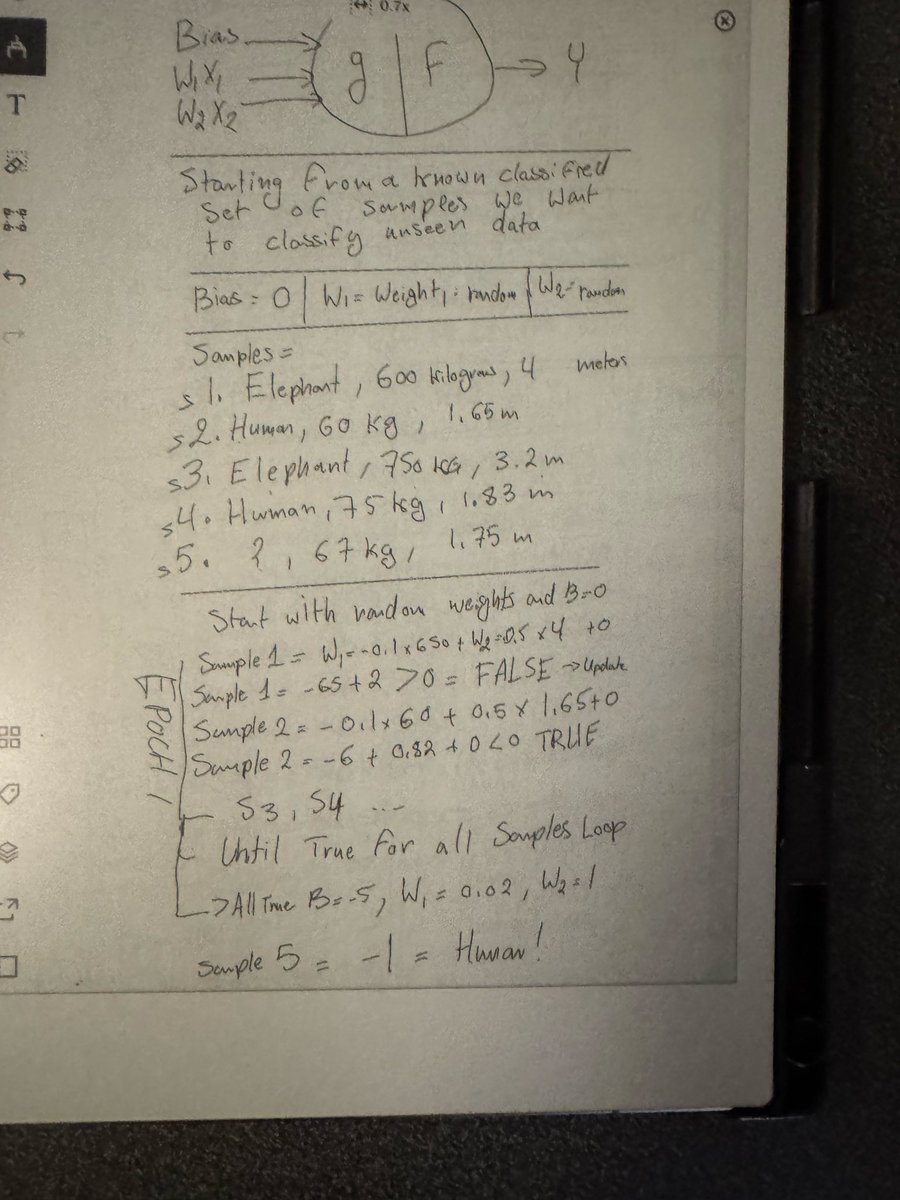 0.7x
Bias
W1X1
W2X2
g | F
Y
T
Starting From a known classified
set of samples we want
to classify unseen data
Bias = 0 | W1 = Weight1 : random | W2 = random
Samples =
s1. Elephant, 600 kilograms, 4 meters
s2. Human, 60 kg, 1.65 m
s3. Elephant, 750 KG, 3.2 m
s4. Human, 75 kg, 1.83 m
s5. ?, 67 kg, 1.75 m
Start with random weights and B=0
Sample 1 = W1=-0.1x650 + W2=0.5x4 +0
Sample 1 = -65+2 >0 = FALSE → Update
Sample 2 = -0.1x60 + 0.5x1.65+0
Sample 2 = -6 + 0.82 + 0 <0 TRUE
EPOCH 1
S3, S4 ...
Until True for all Samples Loop
→ All True B=-5, W1=0.02, W2=1
Sample 5 = -1 = Human!